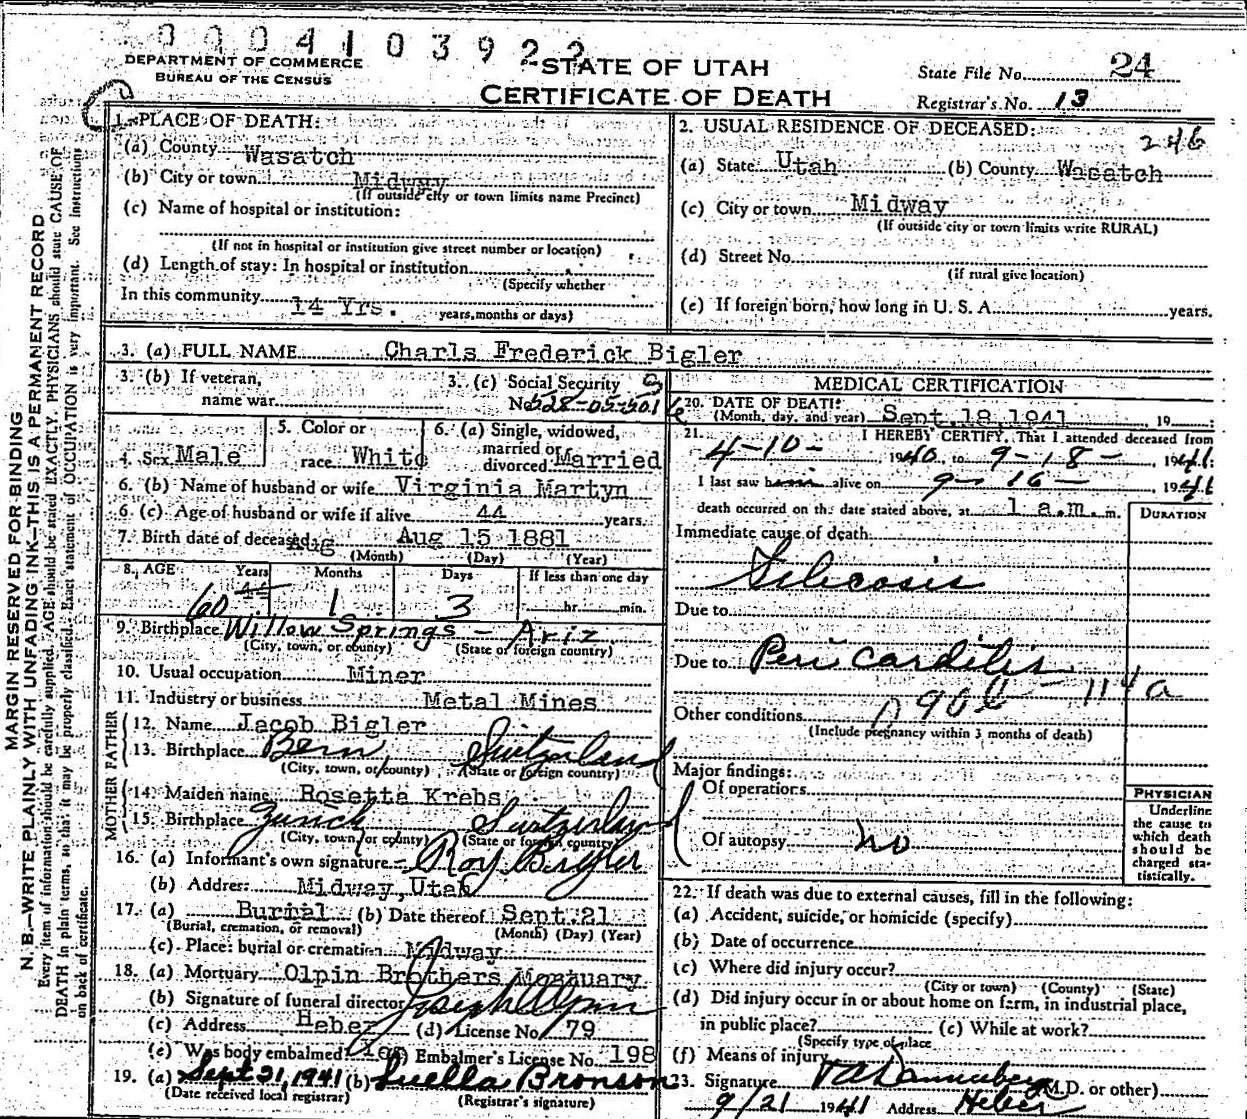 0004103922
DEPARTMENT OF COMMERCE
BUREAU OF THE CENSUS
STATE OF UTAH
CERTIFICATE OF DEATH
State File No. 24
Registrar's No. 13
MARGIN RESERVED FOR BINDING
N. B.—WRITE PLAINLY WITH UNFADING INK—THIS IS A PERMANENT RECORD
Every item of information should be carefully supplied. AGE should be stated EXACTLY. PHYSICIANS should state CAUSE OF
DEATH in plain terms, so that it may be properly classified. Exact statement of OCCUPATION is very important. See instructions
on back of certificate.
1. PLACE OF DEATH:
(a) County Wasatch
(b) City or town Midway
(If outside city or town limits name Precinct)
(c) Name of hospital or institution:
(If not in hospital or institution give street number or location)
(d) Length of stay: In hospital or institution
(Specify whether
In this community 14 Yrs.
years, months or days)
2. USUAL RESIDENCE OF DECEASED:
246
(a) State Utah (b) County Wasatch
(c) City or town Midway
(If outside city or town limits write RURAL)
(d) Street No.
(if rural give location)
(e) If foreign born, how long in U. S. A. years.
3. (a) FULL NAME Charls Frederick Bigler
3. (b) If veteran,
name war
3. (c) Social Security
No. 528-05-5016
4. Sex Male
5. Color or
race White
6. (a) Single, widowed,
married or
divorced Married
6. (b) Name of husband or wife Virginia Martyn
6. (c) Age of husband or wife if alive 44 years.
7. Birth date of deceased Aug Aug 15 1881
(Month) (Day) (Year)
8. AGE Years Months Days If less than one day
60 44 1 3 hr. min.
9. Birthplace Willow Springs - Ariz
(City, town, or county) (State or foreign country)
10. Usual occupation Miner
11. Industry or business Metal Mines
FATHER
12. Name Jacob Bigler
13. Birthplace Bern Switzerland
(City, town, or county) (State or foreign country)
MOTHER
14. Maiden name Rosetta Krebs
15. Birthplace Zurich Switzerland
(City, town, or county) (State or foreign country)
16. (a) Informant's own signature Roy Bigler
(b) Address Midway, Utah
17. (a) Burial (b) Date thereof Sept. 21
(Burial, cremation, or removal) (Month) (Day) (Year)
(c) Place: burial or cremation Midway
18. (a) Mortuary Olpin Brothers Mortuary
(b) Signature of funeral director
(c) Address Heber (d) License No. 79
(e) Was body embalmed Yes (f) Embalmer's License No. 198
19. (a) Sept 21, 1941 (b) Luella Bronson
(Date received local registrar) (Registrar's signature)
MEDICAL CERTIFICATION
20. DATE OF DEATH:
(Month, day, and year) Sept. 18, 1941 19
21. I HEREBY CERTIFY, That I attended deceased from
4-10- 1940, to 9-18-, 1941.
I last saw him alive on 9-16-, 1941
death occurred on the date stated above, at 1 a.m. m.
DURATION
Immediate cause of death
Silicosis
Due to
Due to Pericarditis
90b - 114a
Other conditions
(Include pregnancy within 3 months of death)
Major findings:
Of operations
Of autopsy no
PHYSICIAN
Underline
the cause to
which death
should be
charged sta-
tistically.
22. If death was due to external causes, fill in the following:
(a) Accident, suicide, or homicide (specify)
(b) Date of occurrence
(c) Where did injury occur?
(City or town) (County) (State)
(d) Did injury occur in or about home on farm, in industrial place,
in public place? (e) While at work?
(Specify type of place
(f) Means of injury
23. Signature (M.D. or other)
9/21 1941 Address Heber